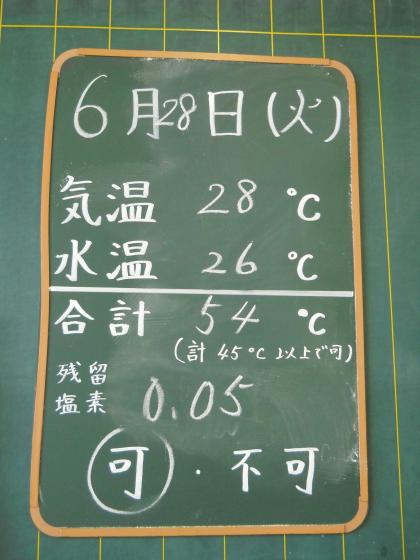 6月28日(火)
気温 28 ℃
水温 26 ℃
合計 54 ℃
(計 45℃ 以上で可)
残留
塩素 0.05
可・不可